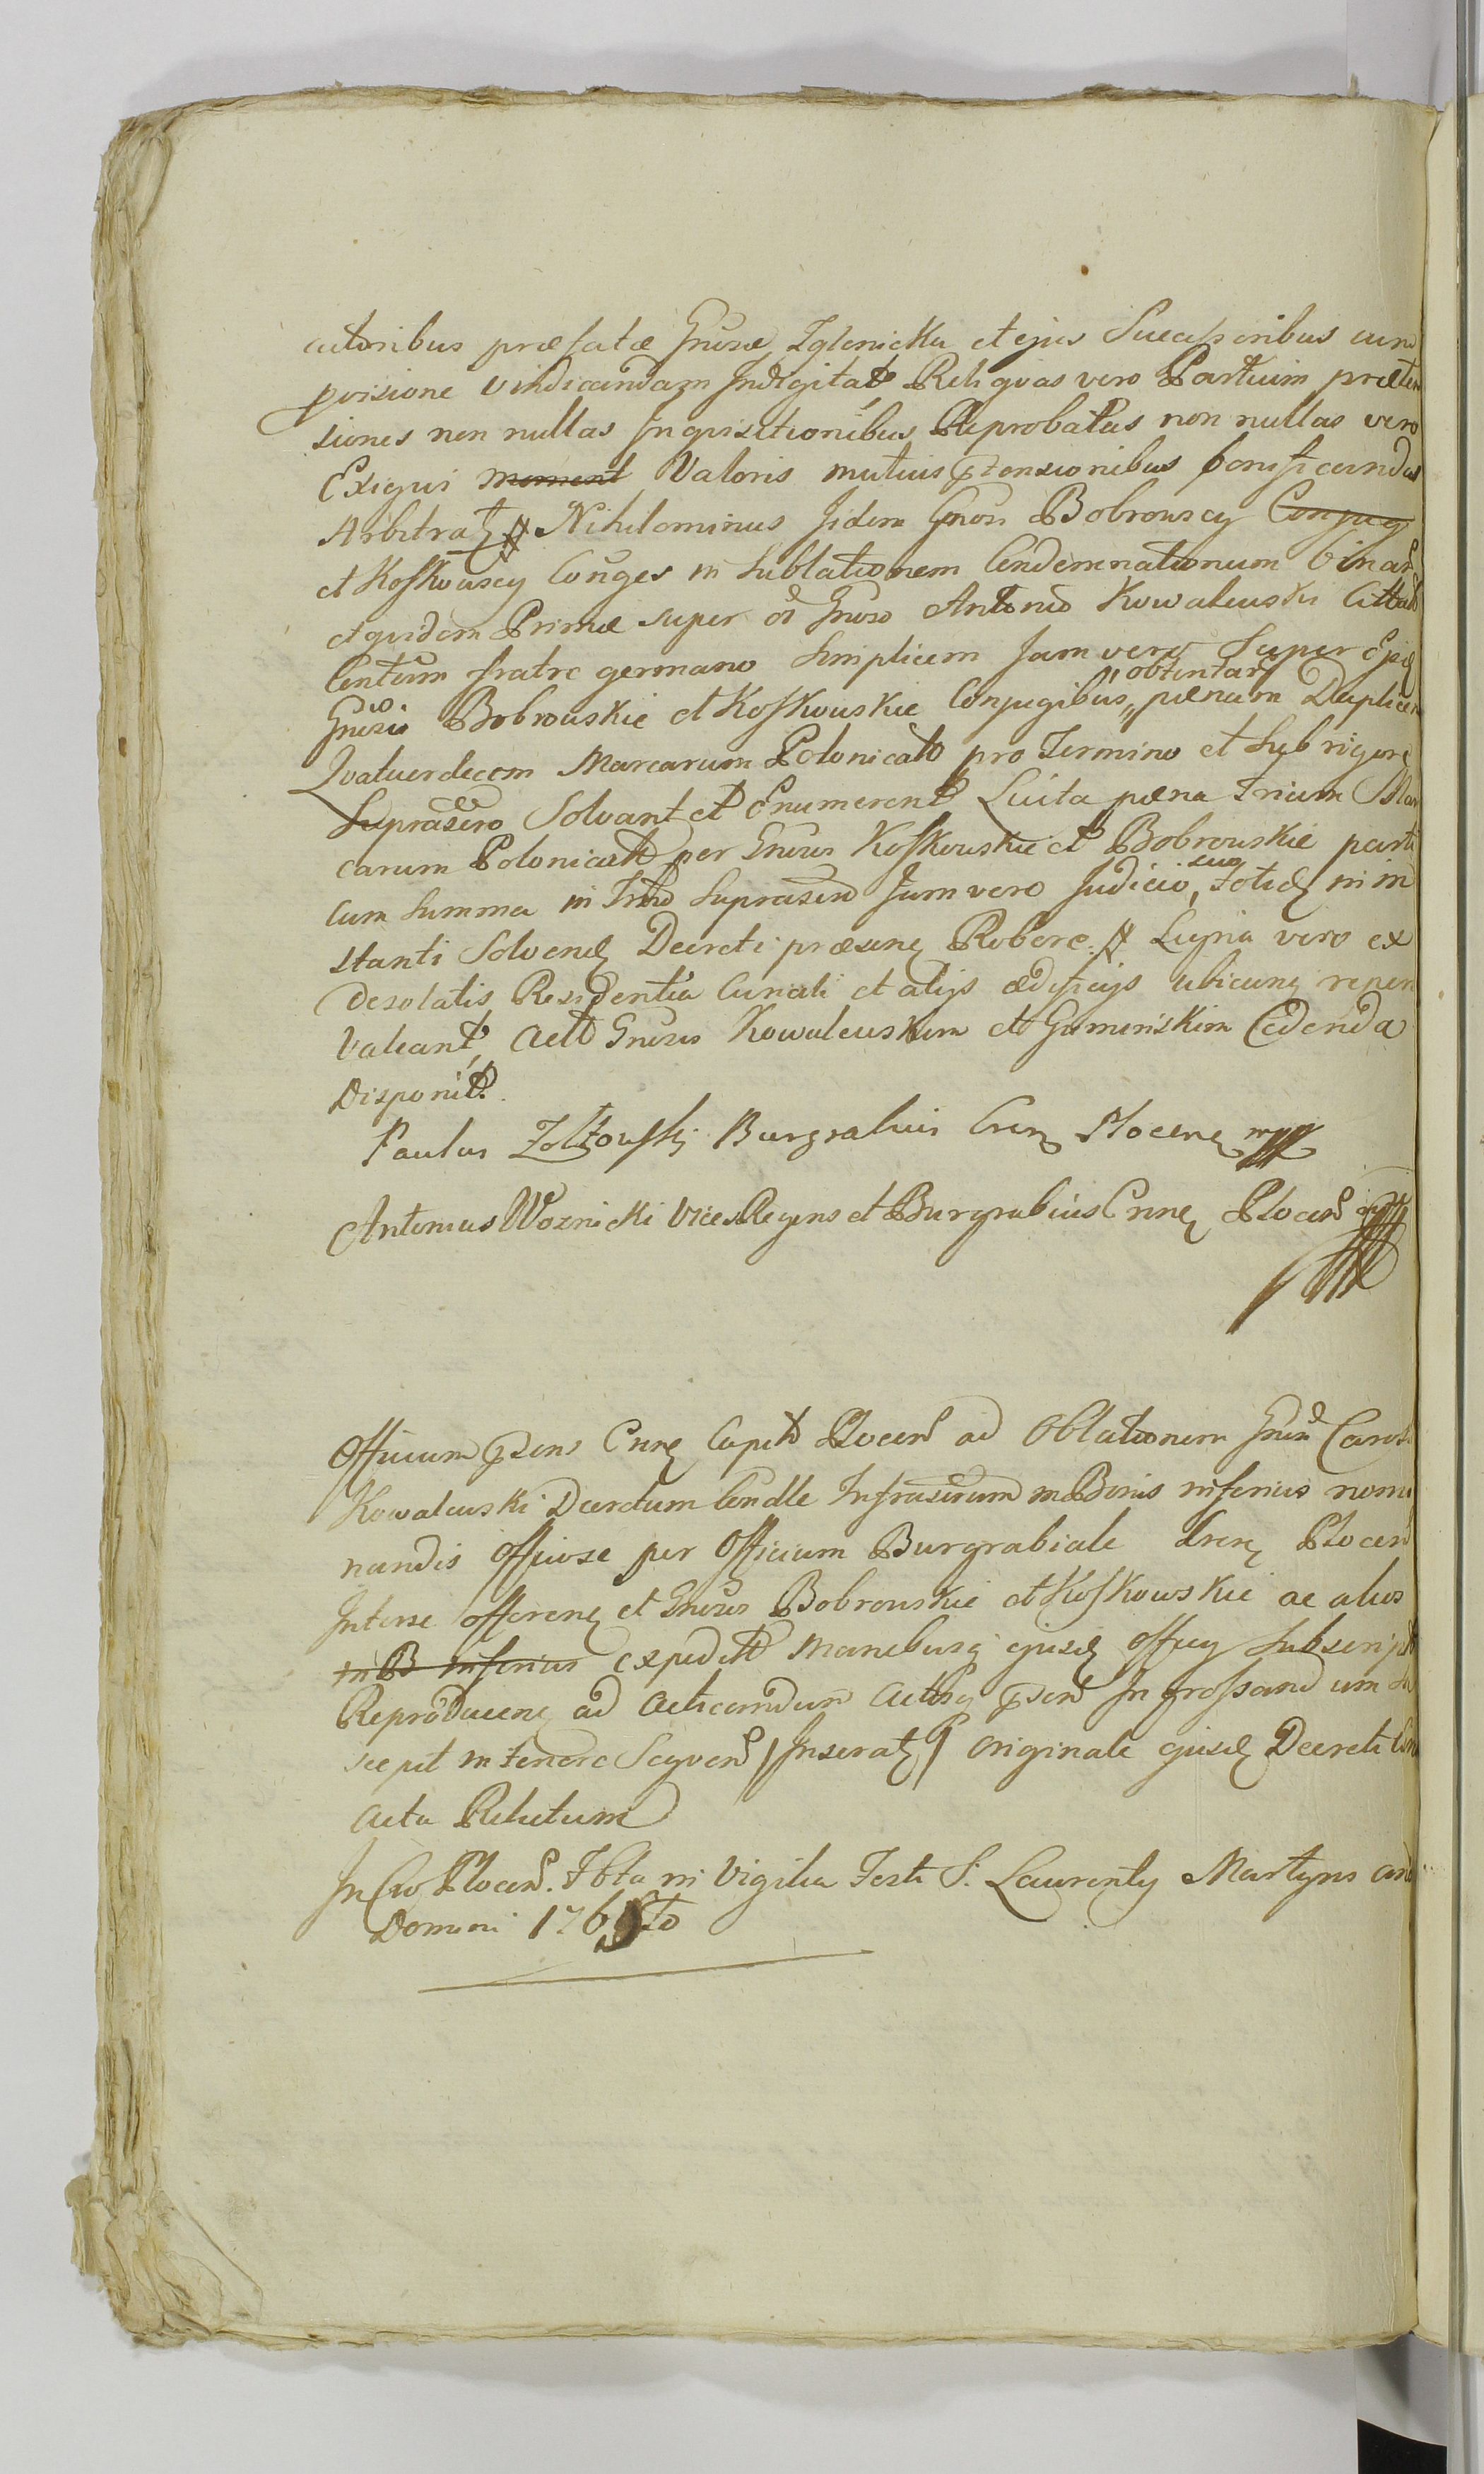 ctoribus præfatæ Gnosæ Zglenicka et ejus Successoribus cum
provisione vindicandam Indigitat Reliquas vero Partium præten
siones non nullas Inqvisitionibus Reprobatas non nullas vero
Exigui moment Valoris mutuis prtensionibus bonificandas
Arbitratz Nihilominus Jidem Gnosi Bobrowscy Conjug
et Koskowscy Conges in Sublationem Condemnationum binar
et qvidem Primæ super Gnoso Antonio Kowalewski Citta
Centium fratre germano Simplicem Jam vero Super
Gnosis Bobrowskie et Koskowskie Conjugibus obtentar pænam Duplicem
Qvatuordecem Marcarum Polonicalt pro Termino et Sub rigore
Suprasero Solvant et Enumerent Luita pæna Trium Mar
carum Polonicalt per Gnosos Koskowskie et Bobrowskie parti
cum Summa in Trno Suprascro Jam vero Judicio suo Totid in in
stanti Solvend Decreti præsenz Robore. Ligna vero ex
Desolatis Residentia Curiali et alijs ædificijs ubicunq reperi
Valeant, Gnosos Kowalewskim et Gumiński Cedenda
Disponit.
Paulus Zołtowski Burgrabius Cren Plocenz mpp
Antonius Woznicki Vices Regens et Burgrabius Crnez Plocen mpp
Officium prsens Crnez Capit Plocen ad Oblationem Gnsi Caroli
Kowalewski Decretum Condle Infrascrum in Bonis inferius nomi
nandis officiose per Officium Burgrabiale Crenz Plocen
Inter se offerenz et Gnosos Bobrowskie et Koskowskie ac alios
in B inferius expedit manibusq ejusd officy Subscript
Reproducenz ad Acticandum Actisq prsen Ingrossandum Su
scepit in tenore Seqven / Inseratz / originale ejusd Decreti
acta Relictum
In Cro Plocen. Fbta in Vigilia Festi S. Laurenty Martyris ano
Domini 176